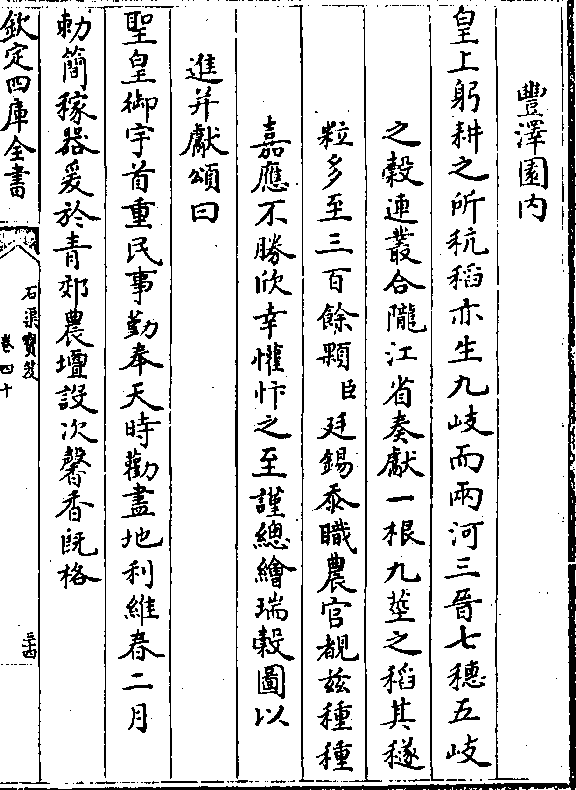 豐澤園內
皇上躬耕之所秔稻亦生九岐而兩河三晉七穗五岐
之穀連叢合隴江省奏獻一根九莖之稻其穟
粒多至三百餘顆臣廷錫忝職農官覩茲種種
嘉應不勝欣幸懽忭之至謹總繪瑞穀圖以
進并獻頌曰
聖皇御宇首重民事勤奉天時勸盡地利維春二月
勑簡稼器爰於青郊農壇設次馨香旣格
欽定四庫全書
石渠寶笈
卷四十
三十四